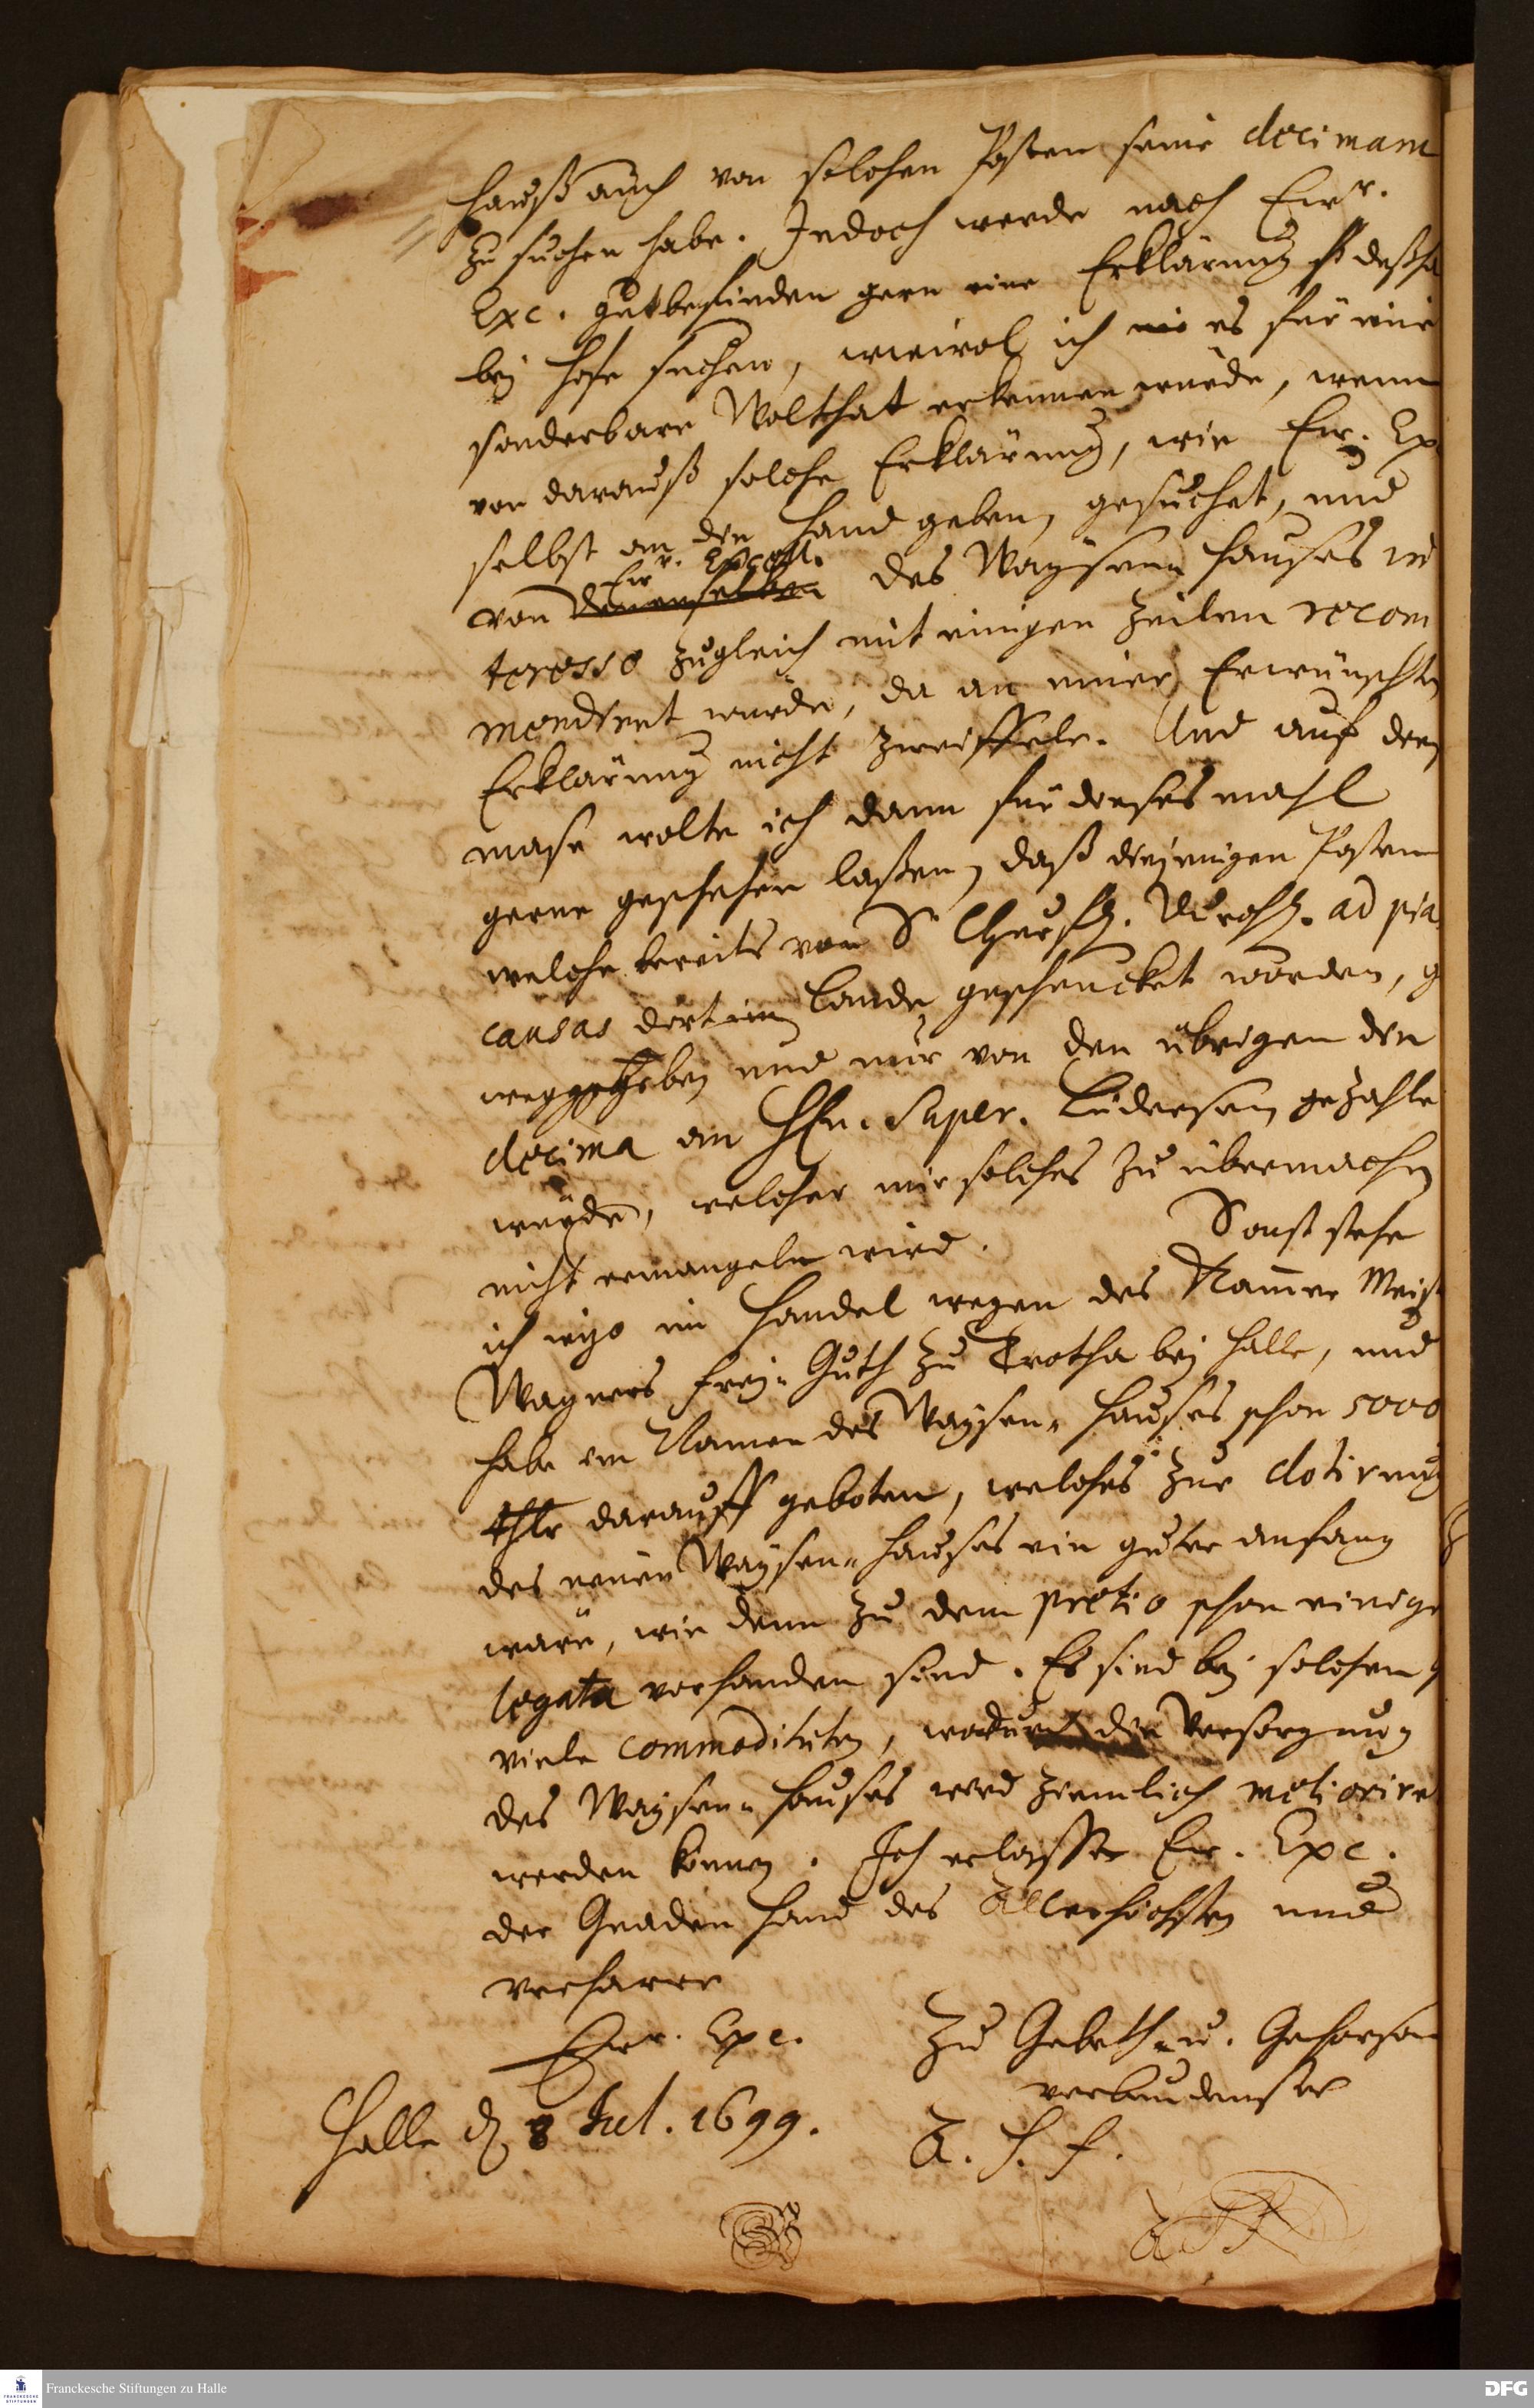 Hauß auch von solchen Posten seine decimam
zu suchen habe. Jedoch werde nach Ewr.
Exc. gutbefinden gern eine Erklärung deßha
bey Hofe suchen, wiewol ich es für eine
sonderbare Wolthat erkennen würde, wenn
von darauß solche Erklärung, wie Ew. Ex
selbst an die Hand geben, gesuchet, und
Ewr. Excell.
von denenselben des Waysen-Hauses in
teresse zugleich mit einigen Zeilen recom
mendiret würde, da an einer Erwünschten
Erklärung nicht zweiffele. Und auf der
mase wolte ich dann für dieses mahl
gerne geschehen laßen, daß diejenigen Posten
welche bereits von Sr. Churfl. Durchl. ad pia
causas dort im Lande geschencket worden,
und nur von den übrigen die
decima an HEn. Super. Lüdersen gezahle
würde, welcher mir solches zu übermachen
nicht ermangeln wird. Sonst stehe
ich itzo im Handel wegen des Kammer Meist
Wagners frey-Guth zu Trotha bey Halle, und
habe im Namen des Waysen-Hauses schon 5000
thlr darauff geboten, welches zur dotirung
des neuen Waysen-Hauses ein guter anfang
wäre, wie denn zu dem pretio schon einige
legata vorhanden sind. Es sind bey solchem
viele commoditäten, wodurch die Versorgung
des Waysen-Hauses wird ziemlich meliorire
werden können. Ich erlasse Ew. Exc.
der Gnaden Hand des Allerhöchsten und
verharre
Ewr. Exc. Zu Gebeth u. Gehorsam
verbundenster
Halle d. 8 Jul. 1699. A. H. F.
Franckesche Stiftungen zu Halle
DFG